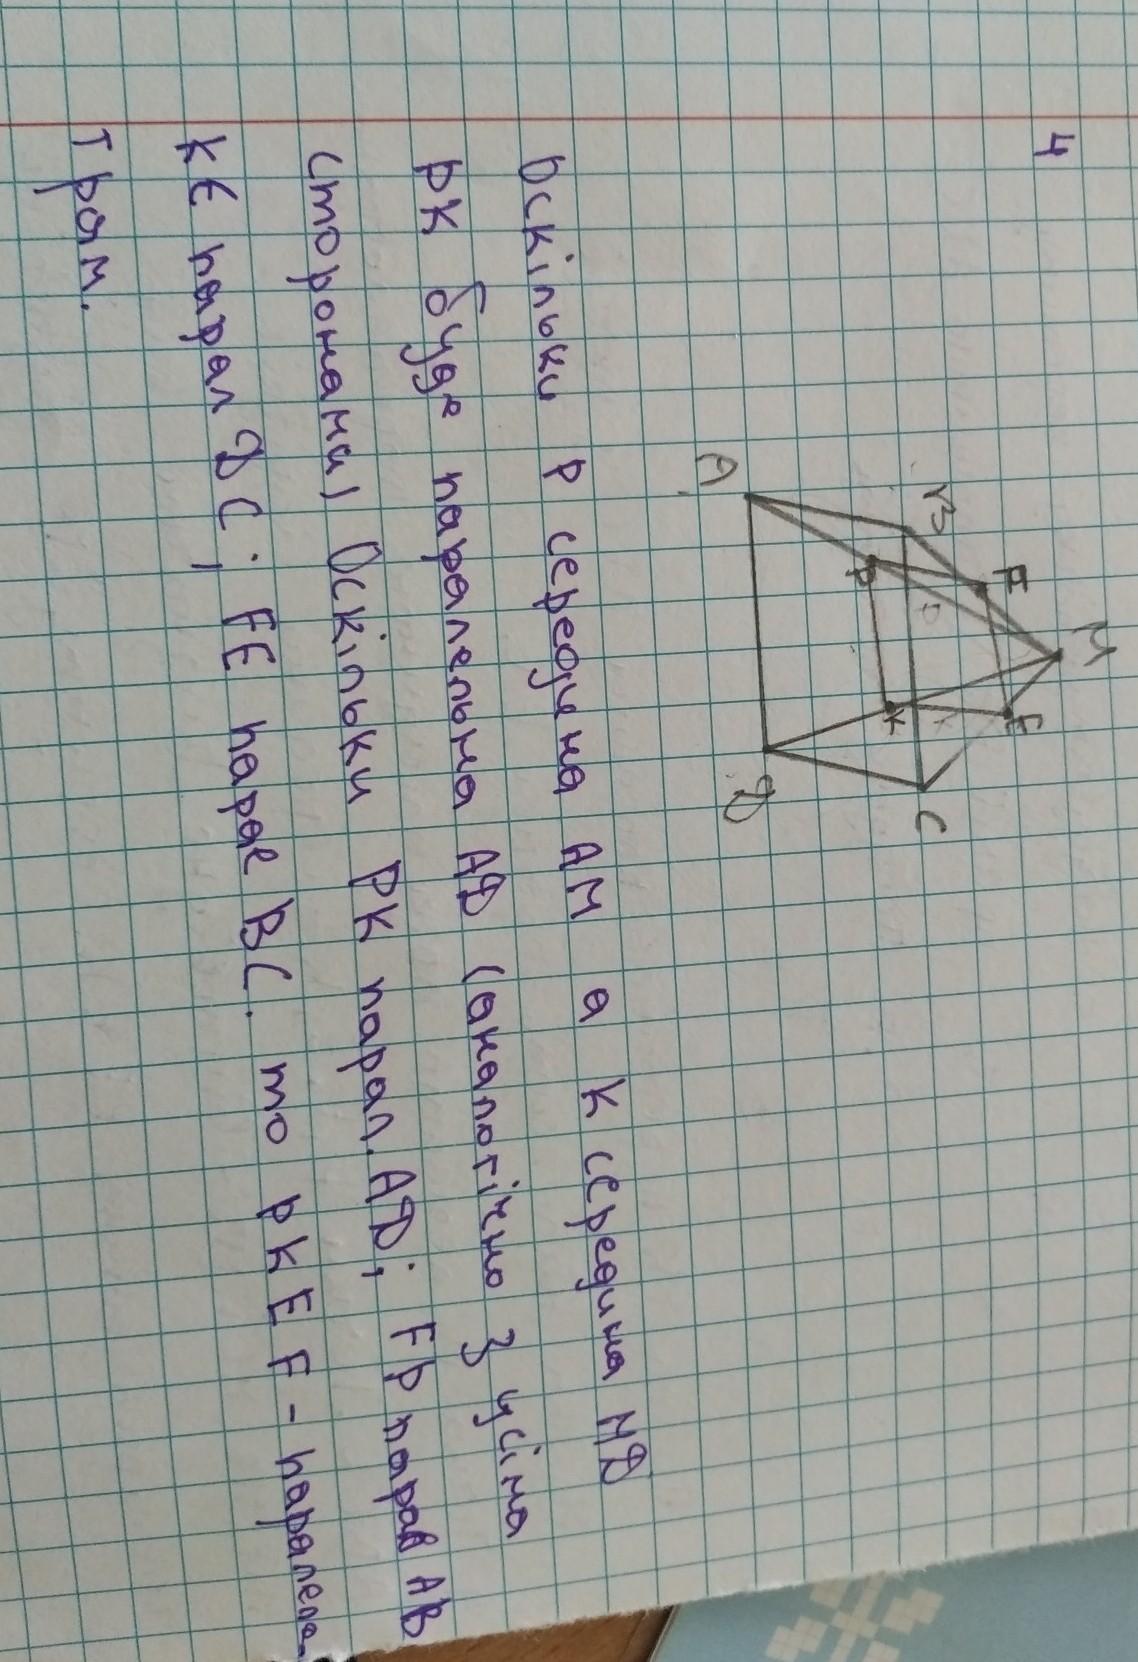 4
M
F
E
B
P
K
C
A
D
Оскільки P середина AM а K середина MD
PK буде паралельна AD (аналогічно з усіма
сторонами) Оскільки PK парал. AD; FP парал AB
KE парал DC; FE парал BC. то PKEF - паралела-
грам.